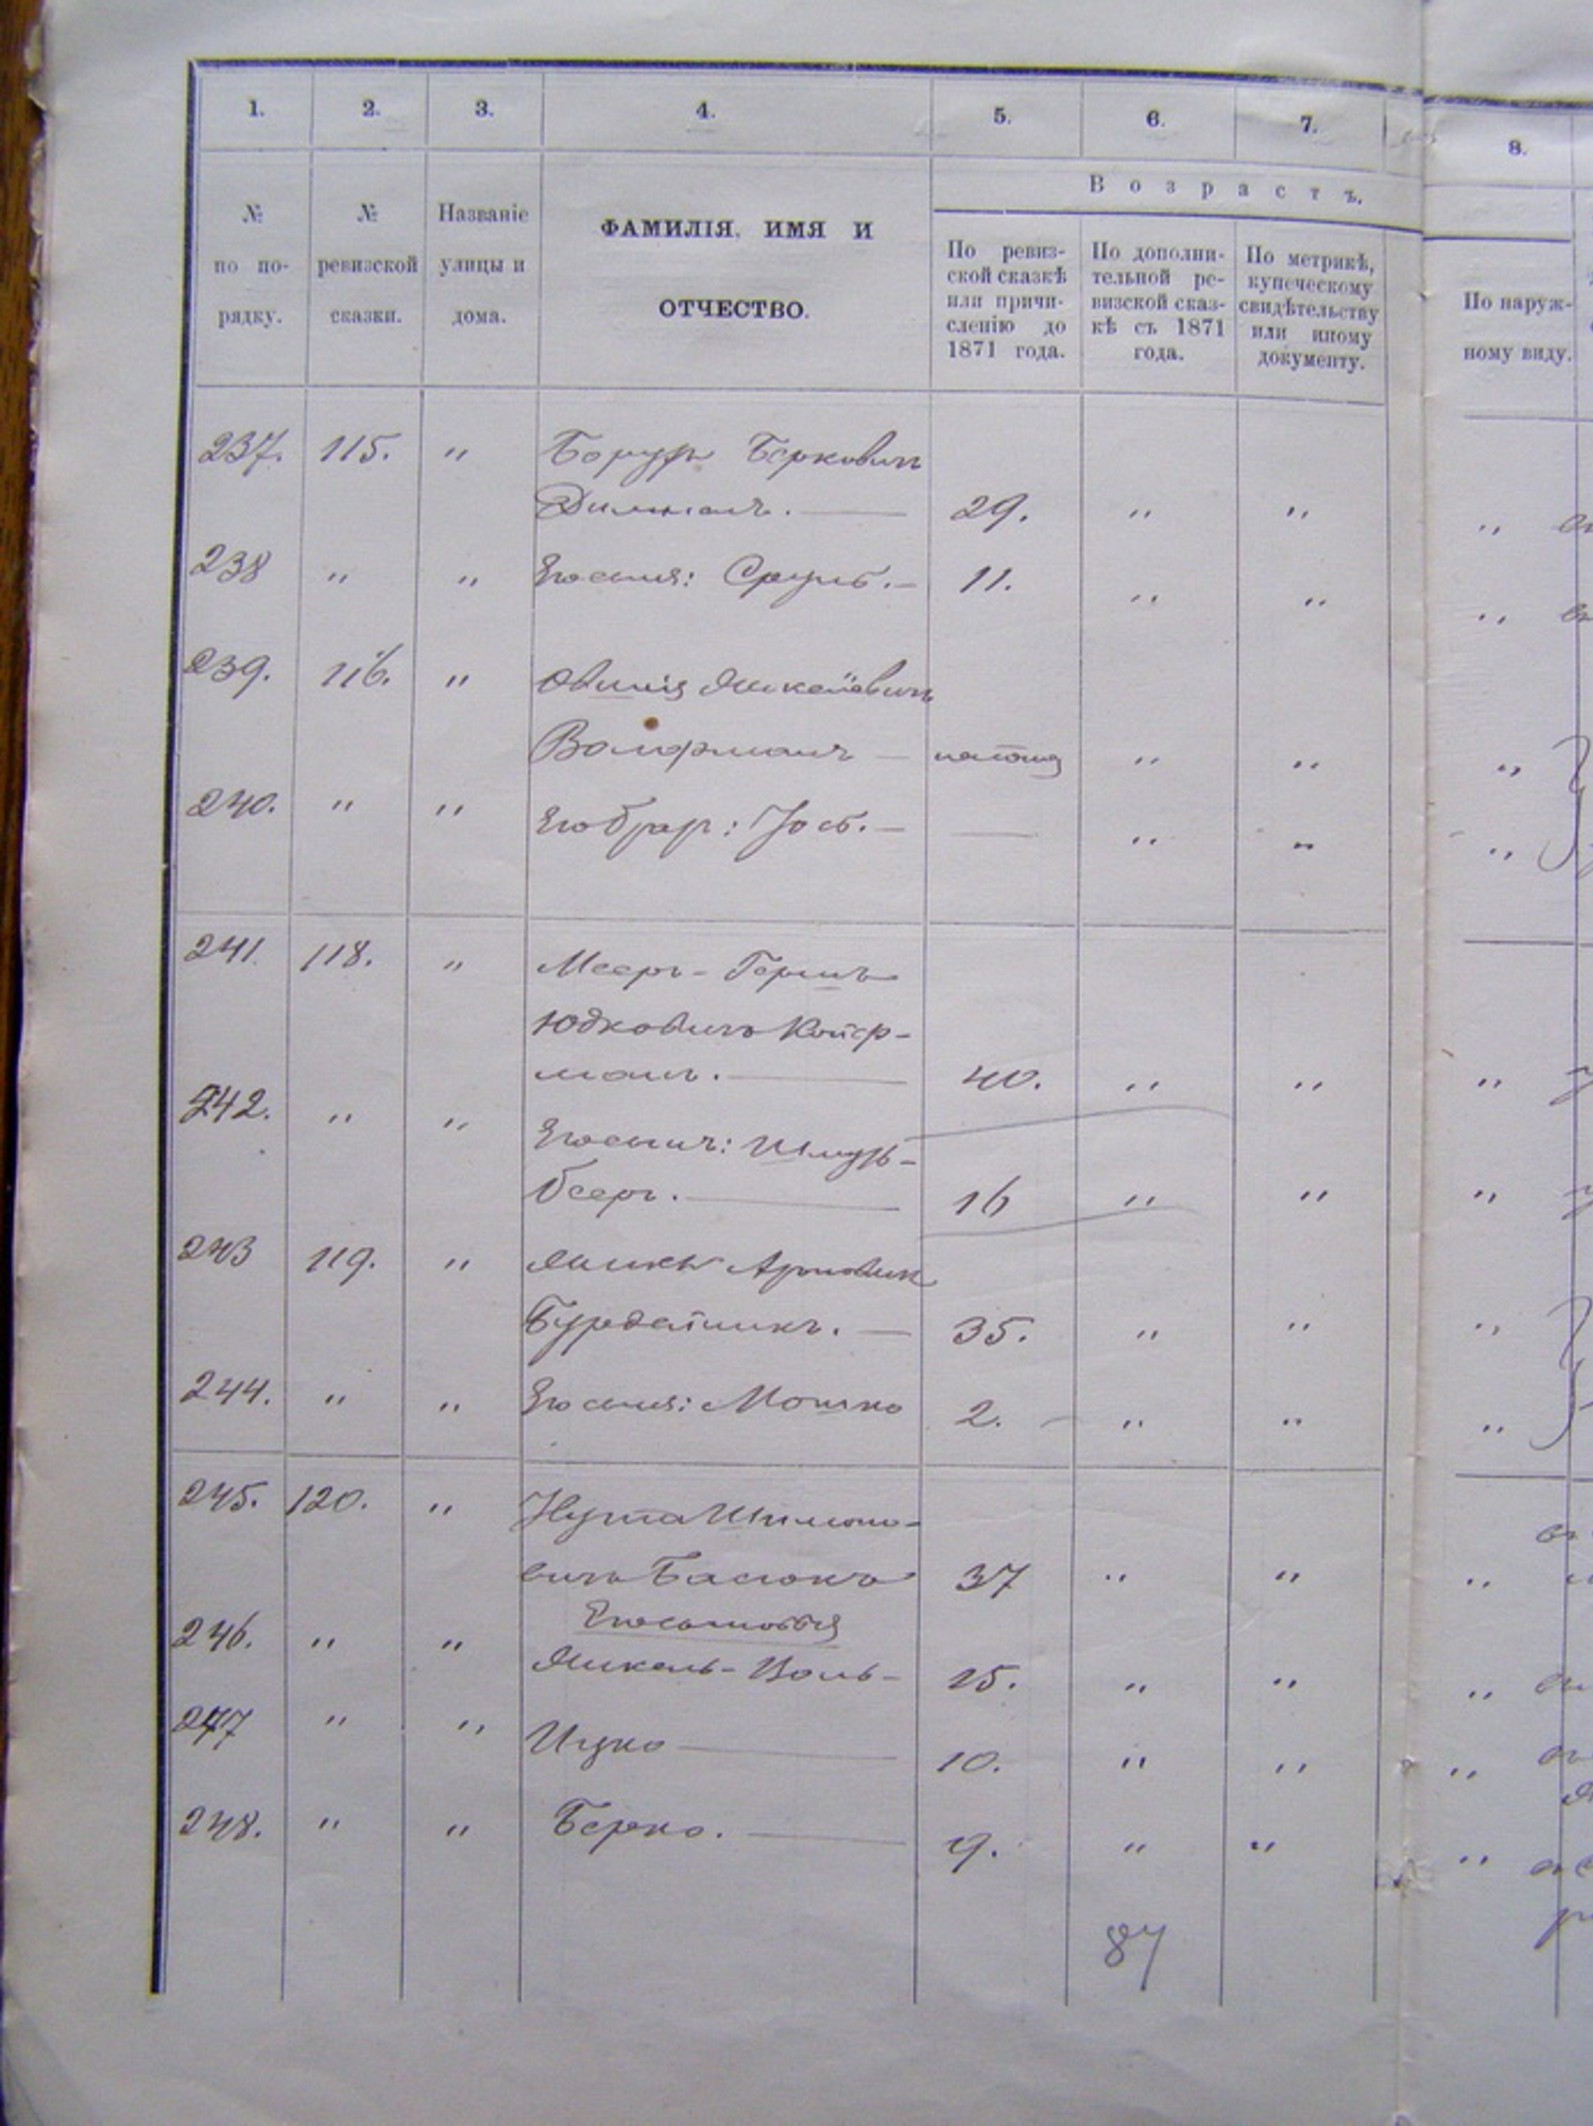 1. 2. 3. 4. 5. 6. 7. 8.
№ по по-рядку.
№ ревизской сказки.
Названіе улицы и дома.
ФАМИЛІЯ, ИМЯ И
ОТЧЕСТВО.
Возрастъ.
По ревиз-
ской сказкѣ
или причи-
сленію до
1871 года.
По дополни-
тельной ре-
визской сказ-
кѣ съ 1871
года.
По метрикѣ,
купеческому
свидѣтельству
или иному
документу.
По наруж-
ному виду.
237. 115. " Борухъ Берковичъ
29. " " "
238 " " Его сынъ: Сруль.— 11. " " "
239. 116. "
Вольфманъ — " " "
240. " " Его братъ: Іось.— — " " "
241. 118. " Мееръ-Гершъ
Юдковичъ Койф-
манъ. — 40. " " "
242. " " Его сынъ: Шмуль-
Бееръ. — 16 " " "
243 119. "
Бурдейникъ. — 35. " " "
244. " " Его сынъ: Мошко 2. " " "
245. 120. " Нута Шимоно-
вичъ Басюкъ 37 " " "
Его сыновья
246. " " Микель-Воль- 15. " " "
247 " " Ицко — 10. " " "
248. " " Берко. — 9. " " "
87